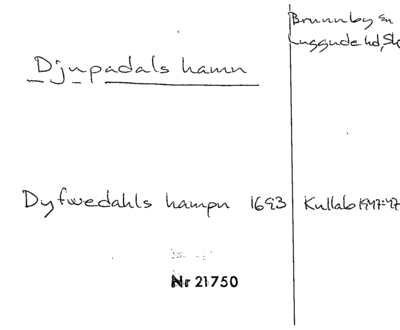 Brunnby sn
Luggude hd, Sk
Djupadals hamn
Dyfwedahls hampn 1693 Kullab 1947:47
Nr 21750